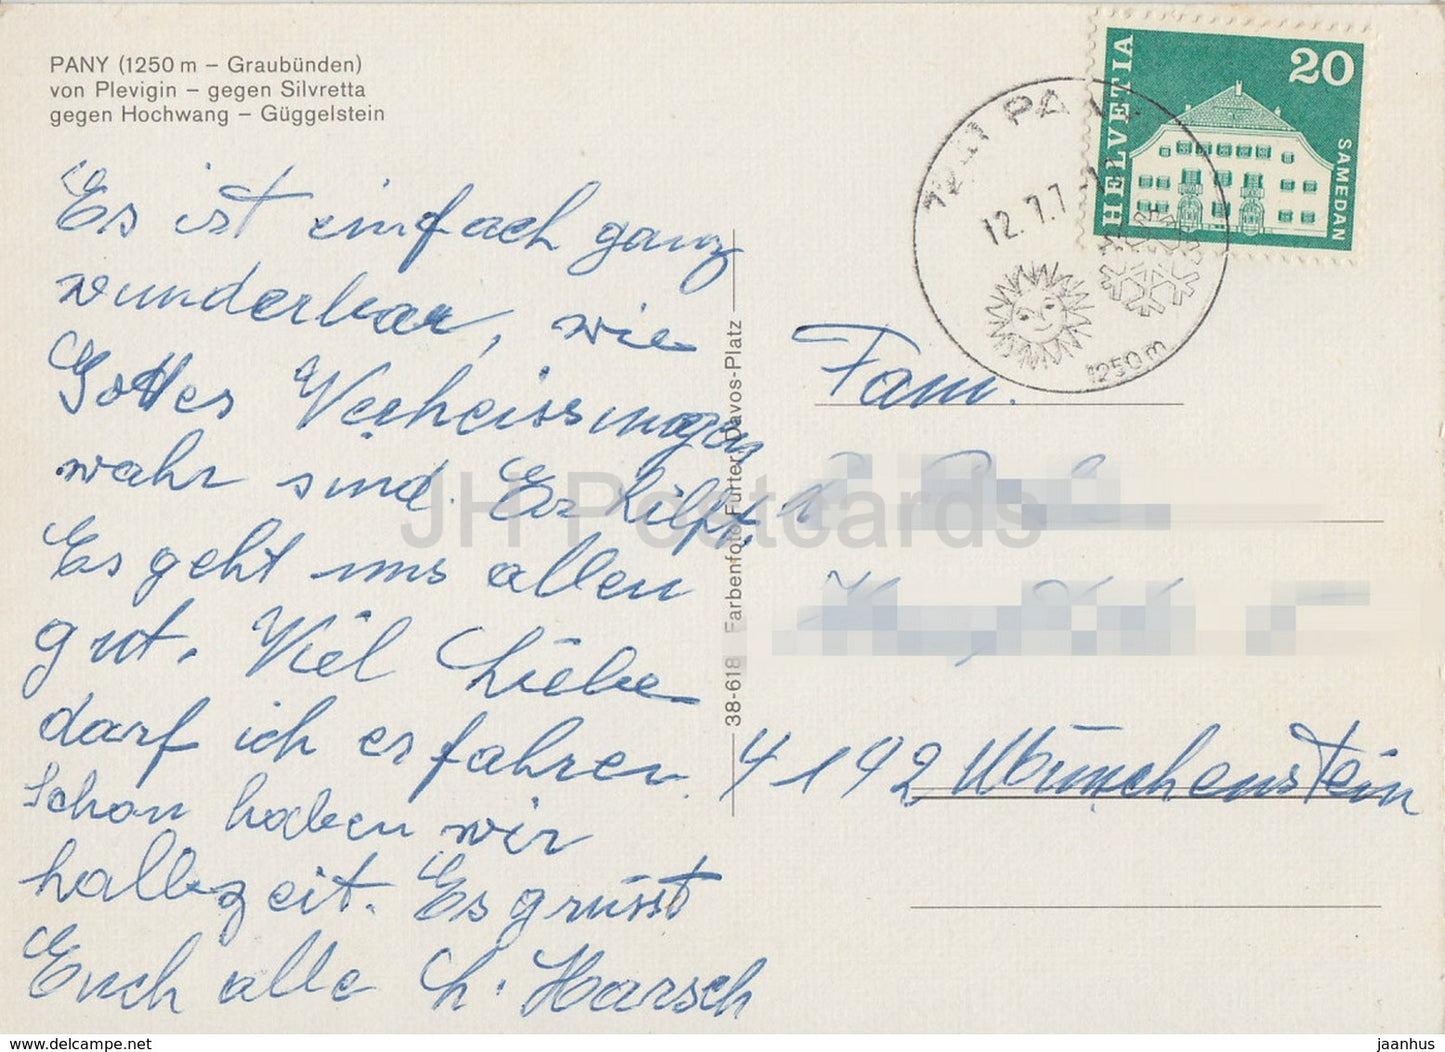 PANY (1250 m – Graubünden)
von Plevigin – gegen Silvretta
gegen Hochwang – Güggelstein
Es ist einfach ganz
wunderbar, wie
Gottes Verheissungen
wahr sind. Er hilft.
Es geht uns allen
gut. Viel Liebe
darf ich erfahren.
Schon haben wir
halbzeit. Es grüsst
Euch alle h. Harsch
38-618 Farbenfoto Furter, Davos-Platz
HELVETIA
20
SAMEDAN
PANY
12.7.7
1250 m
Fam.
4142 Münchenstein
JH Postcards
www.delcampe.net
jaanhus